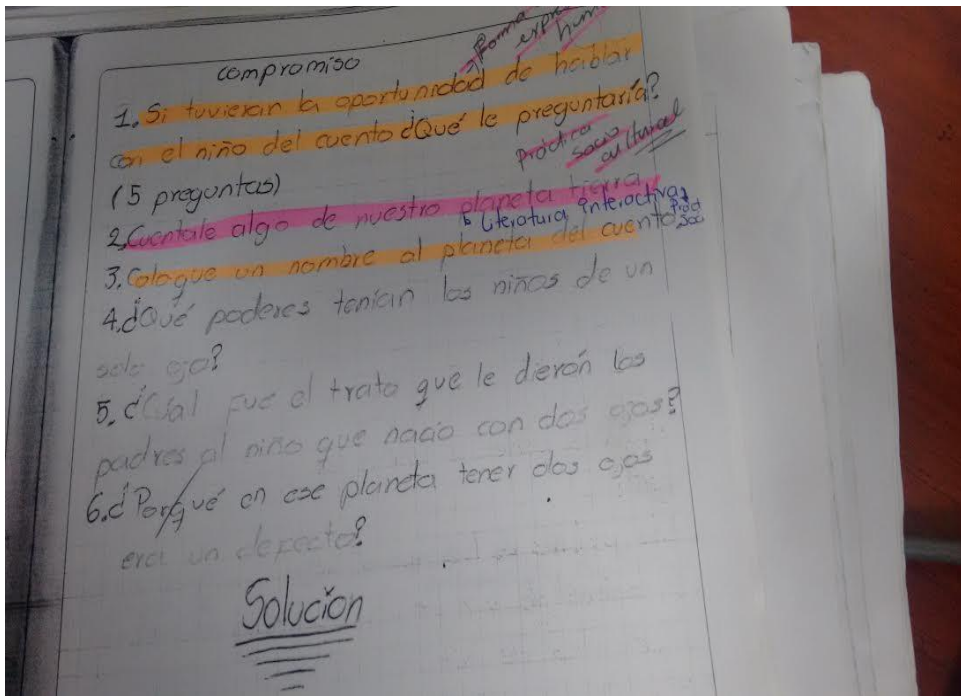 Forma
expre
hum
compromiso
1. Si tuvieran la oportunidad de hablar
con el niño del cuento ¿Qué le preguntaría?
Práctica
socio
cultural
(5 preguntas)
2, Cuentale algo de nuestro planeta tierra
Literatura interactiva
3. Coloque un nombre al planeta del cuento
4. ¿Qué poderes tenian los niños de un
solo ojo?
5. ¿Cúal fue el trato que le dierón los
padres al niño que nacio con dos ojos?
6. ¿Porqué en ese planeta tener dos ojos
era un defecto?
Solución